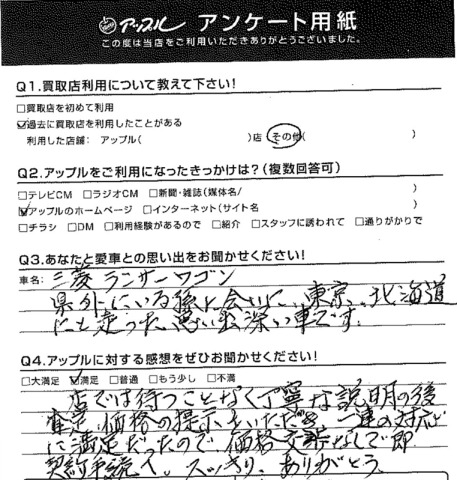 アップル アンケート用紙
この度は当店をご利用いただきありがとうございました。
Q1.買取店利用について教えて下さい!
□買取店を初めて利用
☑過去に買取店を利用したことがある
利用した店舗: アップル( )店 その他( )
Q2.アップルをご利用になったきっかけは?(複数回答可)
□テレビCM □ラジオCM □新聞・雑誌(媒体名/ )
☑アップルのホームページ □インターネット(サイト名 )
□チラシ □DM □利用経験があるので □紹介 □スタッフに誘われて □通りがかりで
Q3.あなたと愛車との思い出をお聞かせください!
車名: 三菱 ランサーワゴン
県外にいる孫に会いに、東京、北海道
にと走った思い出深い車です。
Q4.アップルに対する感想をぜひお聞かせください!
□大満足 ☑満足 □普通 □もう少し □不満
店では待つことなく丁寧な説明の後
査定、価格の提示をいただき 一連の対応
に満足だったので、価格交渉なしで即
契約手続へ。スッキリ、ありがとう。